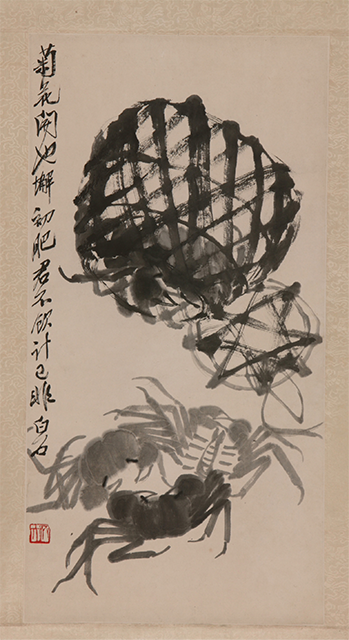 菊花開也蠏初肥君不飲計已非白石